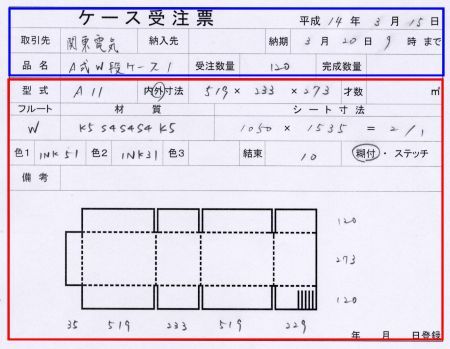 ケース受注票 平成 14年 3月 15日
取引先 関東電気 納入先 納期 3月 20日 9時まで
品名 A式W段ケース1 受注数量 120 完成数量
型式 A11 内外寸法 519 × 233 × 273 才数 ㎡
フルート 材質 シート寸法
W K5 S4 S4 S4 K5 1050 × 1535 = 2/1
色1 INK51 色2 INK31 色3 結束 10 糊付・ステッチ
備考
120
273
120
35 519 233 519 229
年 月 日登録